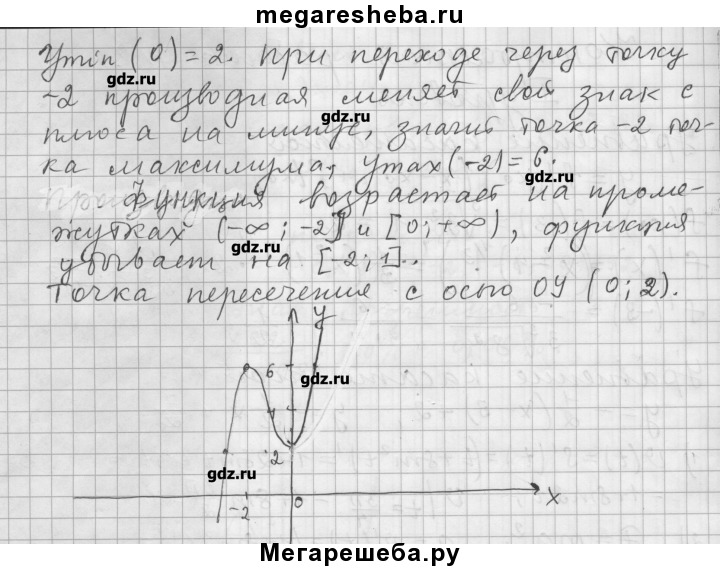 megaresheba.ru
ymin (0) = 2. При переходе через точку
gdz.ru
-2 производная меняет свой знак с
плюса на минус, значит точка -2 точ-
ка максимума, ymax(-2) = 6.
gdz.ru
функция возрастает на проме-
жутках (-∞; -2] и [0; +∞), функция
gdz.ru
убывает на [-2; 1].
Точка пересечения с осью OY (0; 2).
y
6
gdz.ru
4
2
gdz.ru
-2 0 x
Мегарешеба.ру